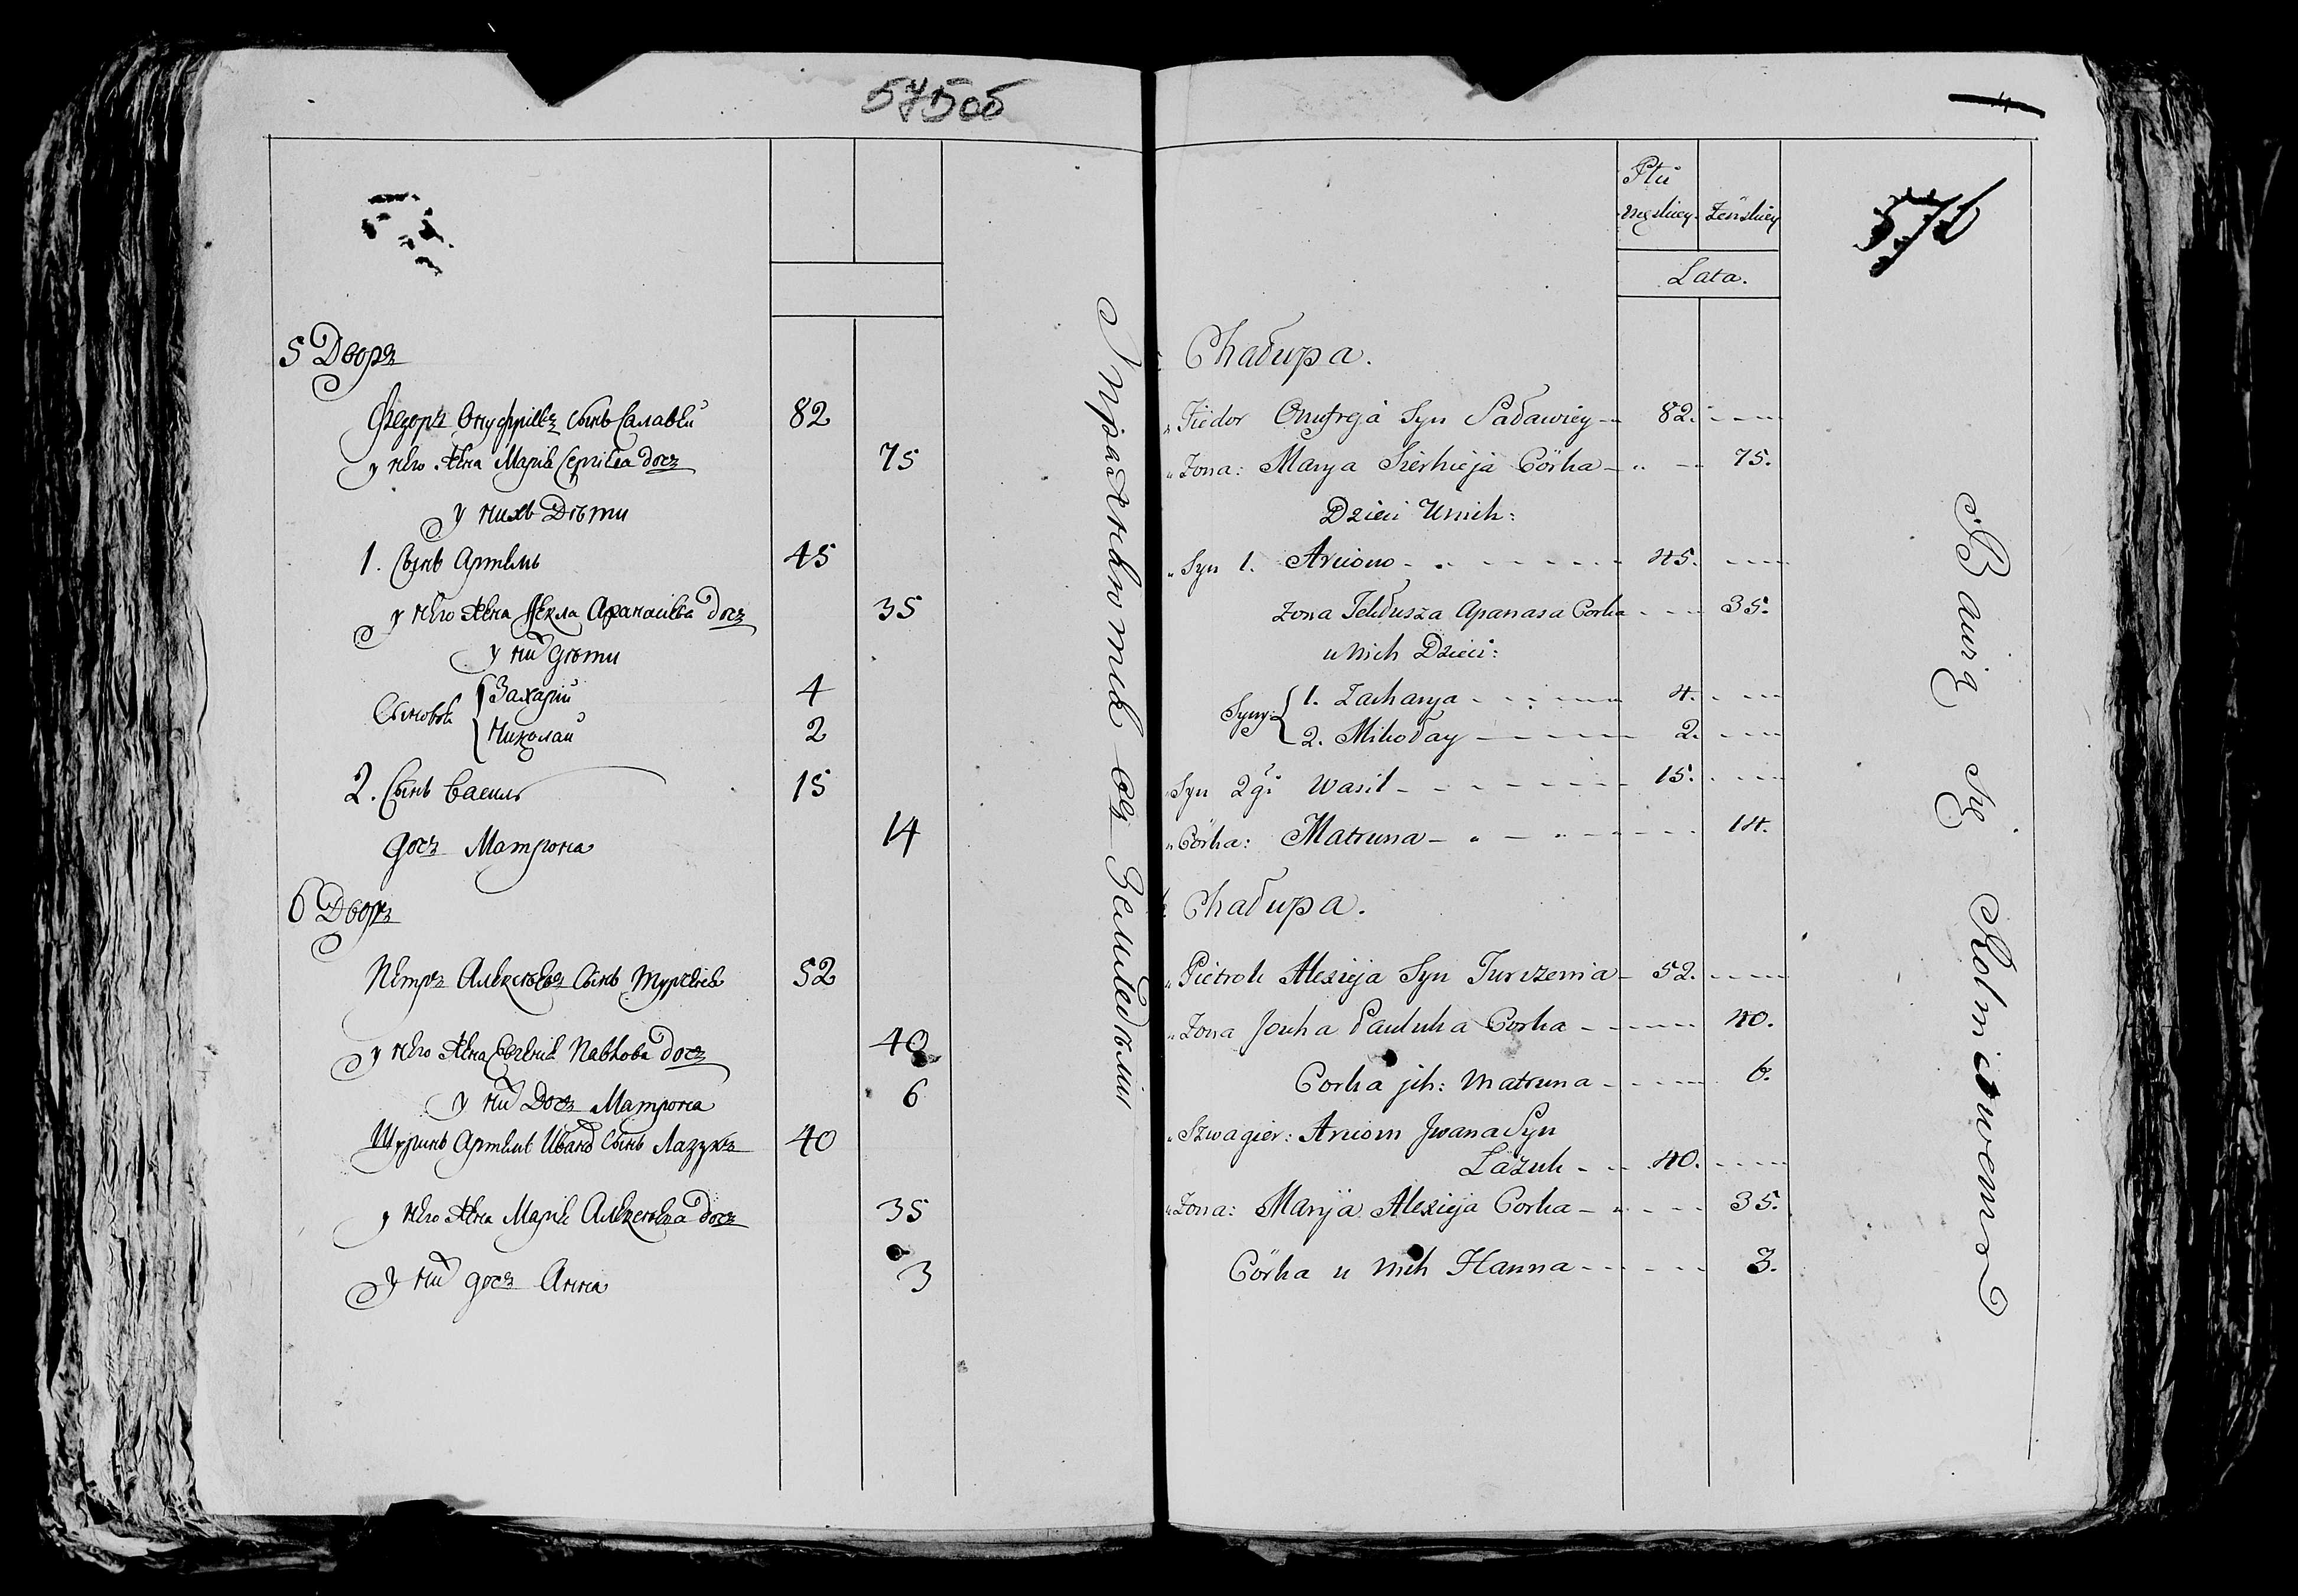 575об
5 Дворъ
Федоръ Онуфріевъ Сынъ Салавей 82
у него Жена Марія Сергіева дочь 75
у нихъ Дѣти
1. Сынъ Артемъ 45
у него Жена Фекла Афанасіева дочь 35
у них дѣти
Сыновья { Захарій 4
Николай 2
2. Сынъ Василь 15
дочь Матрона 14
6 Дворъ
Петръ Алексѣевъ Сынъ Турченя 52
у него Жена Евгенія Павлова дочь 40
у них Дочь Матрона 6
Шуринъ Артемъ Иванов Сынъ Лазукъ 40
у него Жена Марія Алексѣева дочь 35
у них дочь Анна 3
Упражняются въ Земледѣліи
576
Płci
męskiey. Żeńskiey
Lata.
Chałupa.
Fiedor Onufreja Syn Saławiey 82.
Żona: Marya Sierhieja Córka 75.
Dzieci U nich:
Syn 1. Arciom 45.
Żona Tekłusza Apanasa Corka 35.
u Nich Dzieci:
Syny: { 1. Zacharya 4.
2. Mikołay 2.
Syn 2gi Wasil 15.
Córka: Matruna 14.
Chałupa.
Pietrok Alexieja Syn Turczenia 52.
Żona Jouha Pauluka Corka 40.
Corka jih: Matruna 6.
Szwagier: Arciom Jwana Syn
Łazuk 40.
Żona: Marÿa Alexieja Corka 35.
Córka u Nich Hanna 3.
Bawią się Rolnictwem